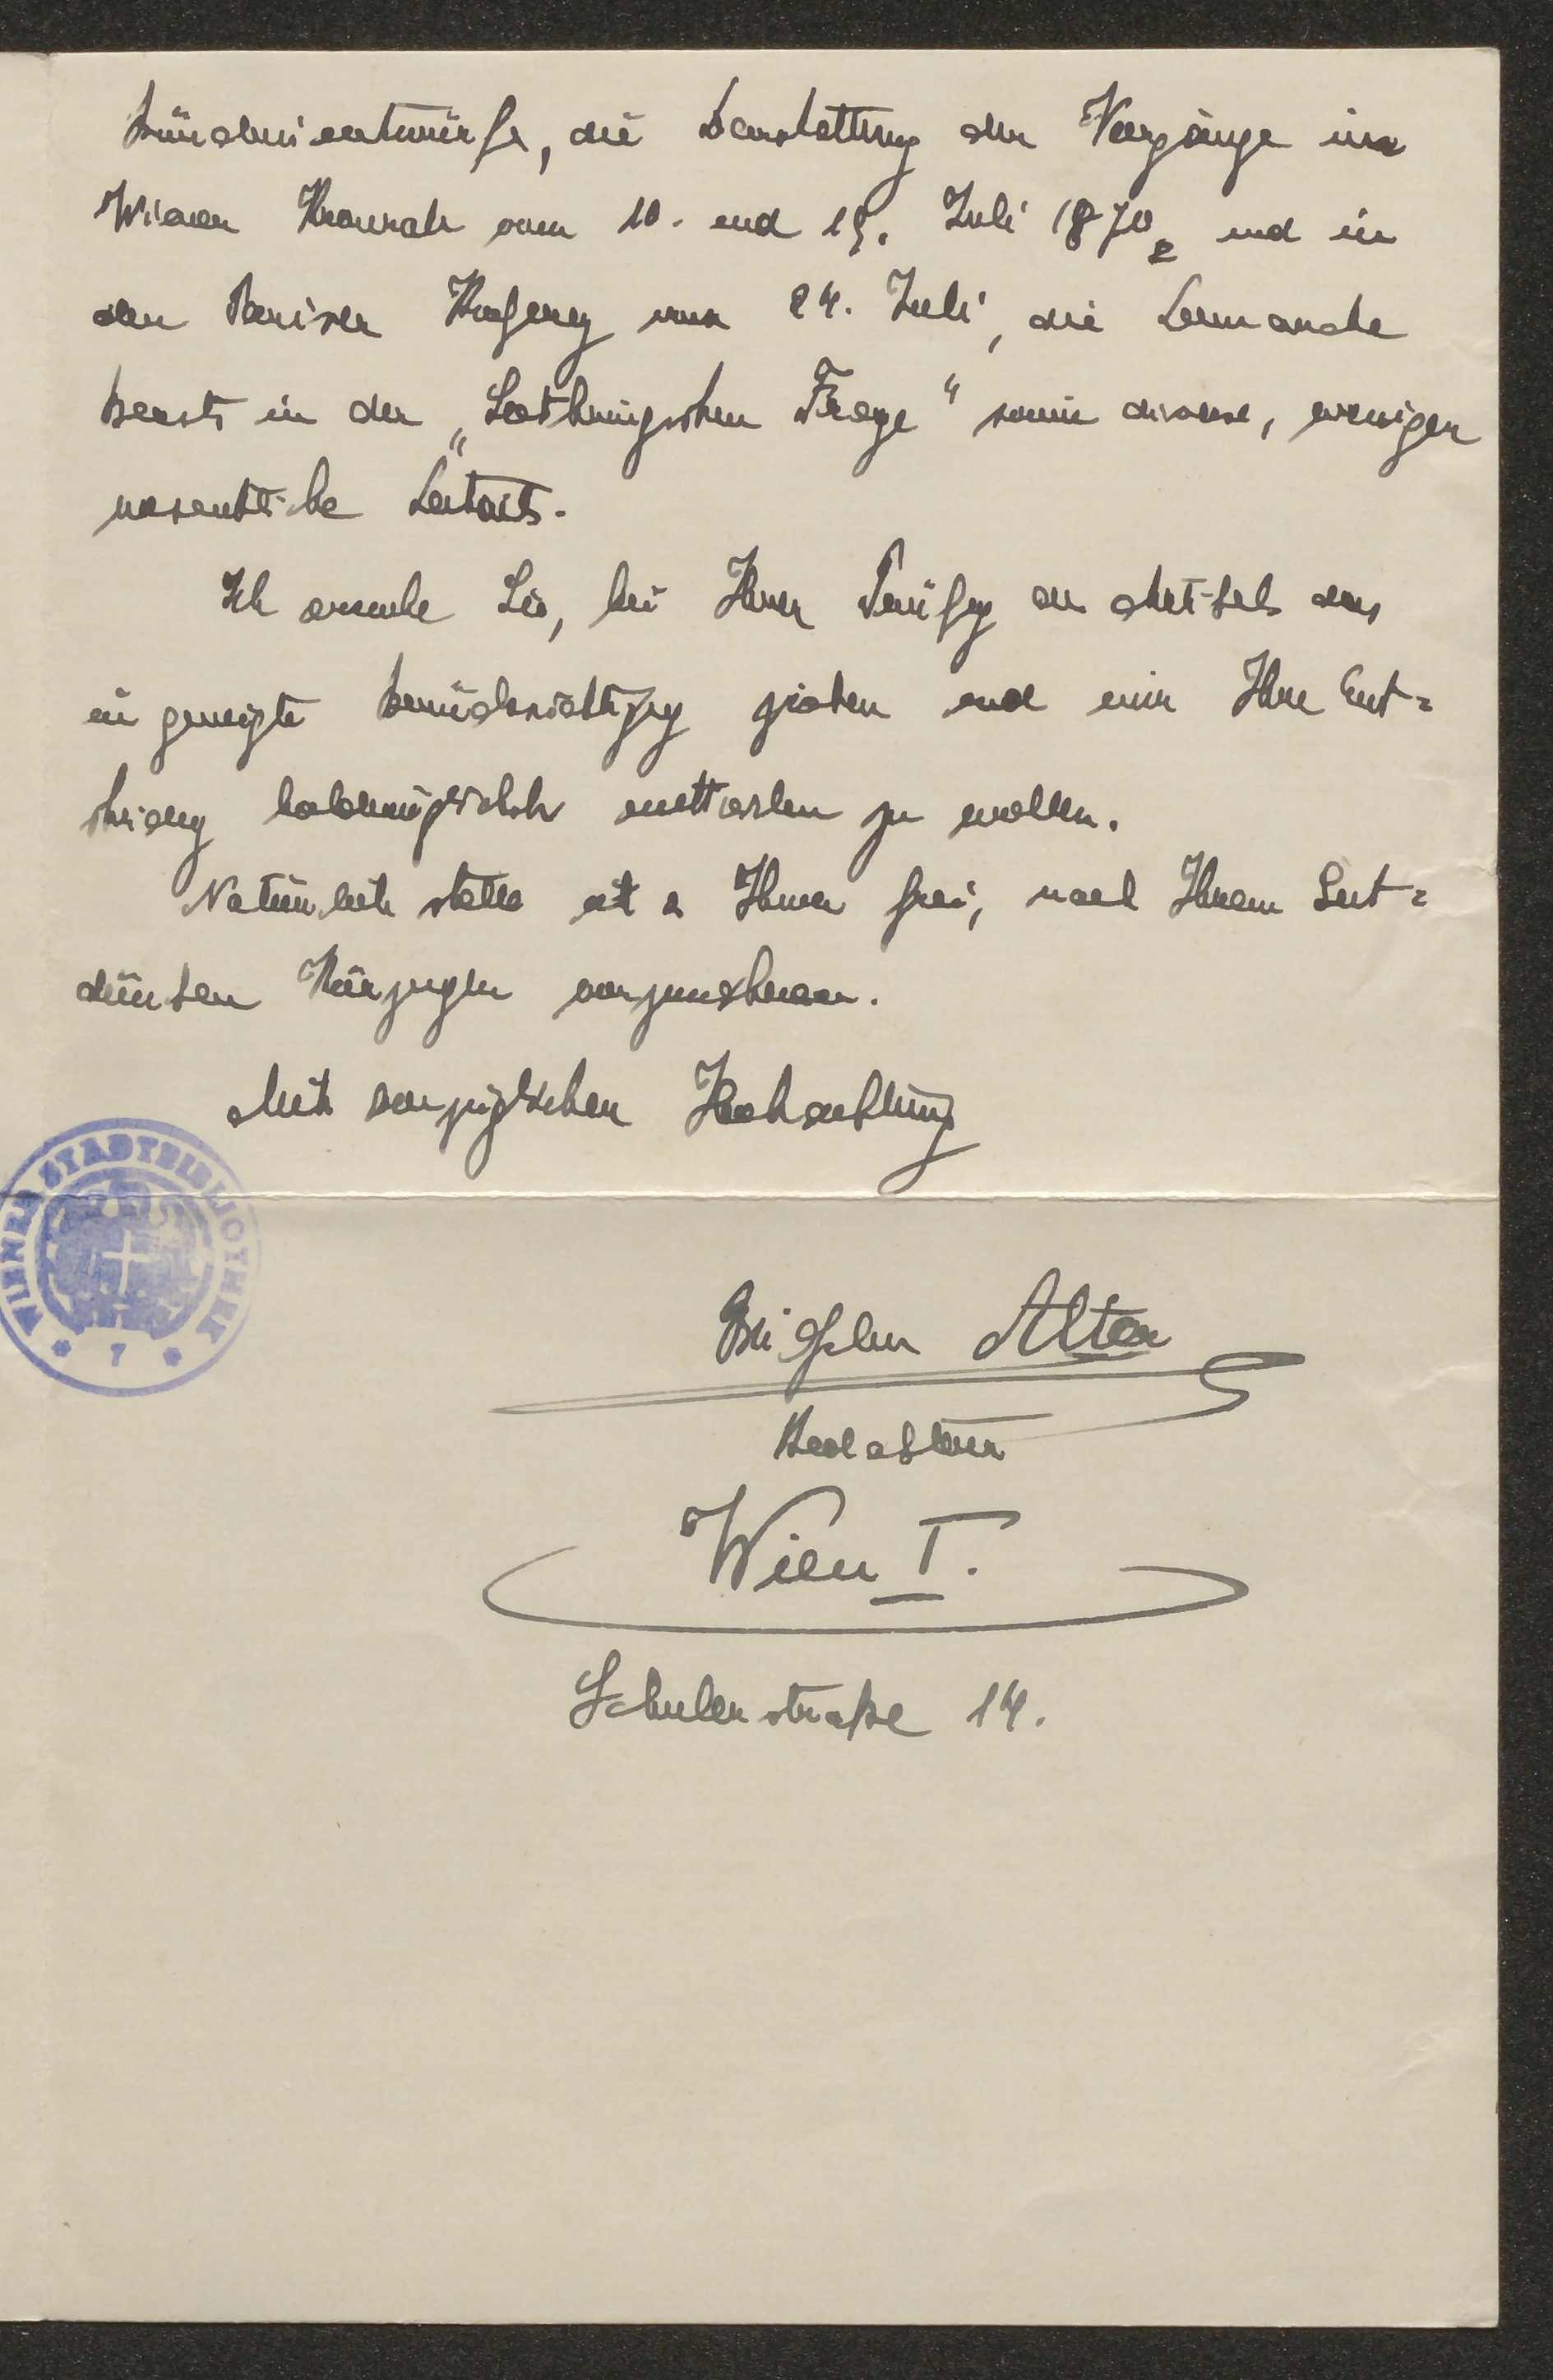 Bündnisentwürfe, die Darstellung der Vorgänge im
Wiener Kronrate vom 10. und 18. Juli 1870 und in
der Pariser vom 24. Juli, die Demarche
Beusts in der „Lothringischen Frage“ sowie diverse, weniger
wesentliche Details.
Ich ersuche Sie, bei Ihrer Prüfg des Artikels dies
in geneigte Berücksichtigg ziehen und mir Ihre Ent=
scheidg baldmöglichst mitteilen zu wollen.
Natürlich stelle ich es Ihnen frei, nach Ihrem Gut=
dünken Kürzungen vorzunehmen.
Mit vorzüglicher Hochachtung
WIENER STADTBIBLIOTHEK
* 7 *
Alter
Redakteur
Wien I.
Schulerstraße 14.